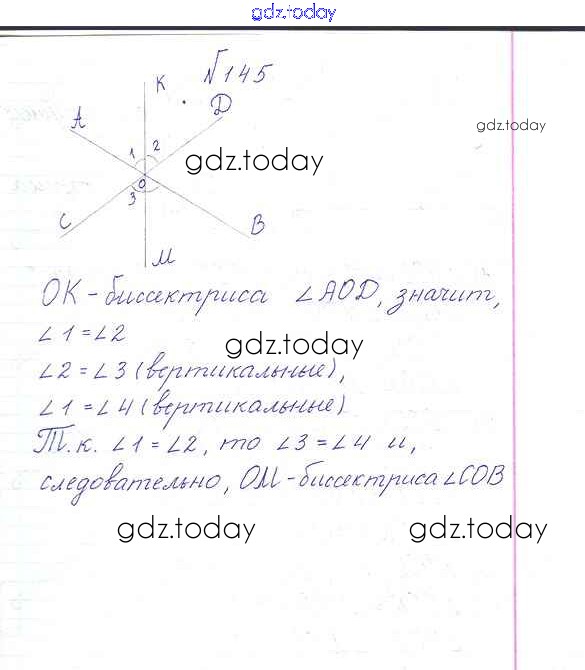 gdz.today
№145
К
А
D
gdz.today
1 2
gdz.today
О
3
С
В
М
ОК - биссектриса ∠AOD, значит,
∠1=∠2
gdz.today
∠2=∠3 (вертикальные),
∠1=∠4 (вертикальные)
Т.к. ∠1=∠2, то ∠3=∠4 и,
следовательно, ОМ-биссектриса ∠СОВ
gdz.today gdz.today